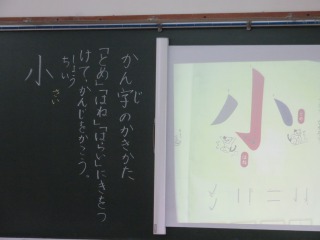 かん字のかきかた
じ
「とめ」「はね」「はらい」にきをつ
けて、かんじをかこう。
しょう
ちい
小さい
小